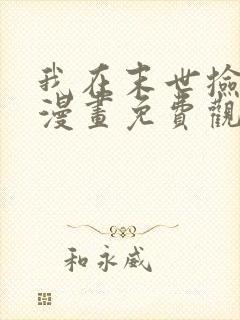 我在末世撿
漫畫免費觀
和永威